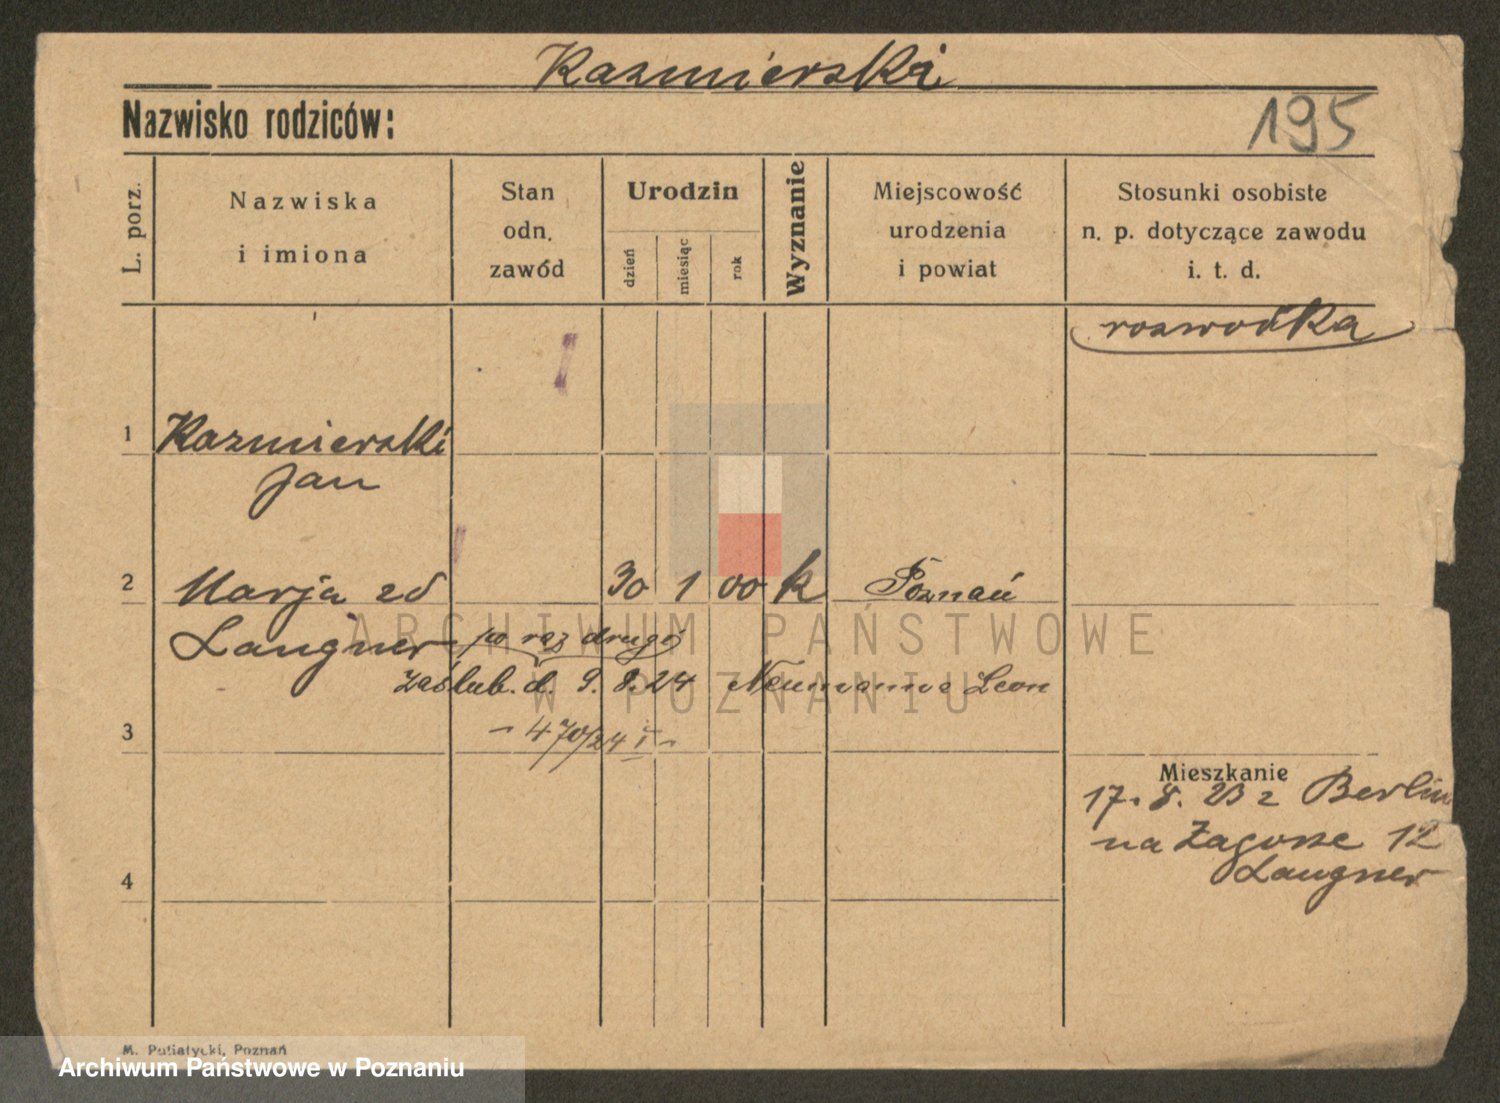 Kazmierski
Nazwisko rodziców:
195
L. porz.
Nazwiska
i imiona
Stan
odn.
zawód
Urodzin
dzień
miesiąc
rok
Wyznanie
Miejscowość
urodzenia
i powiat
Stosunki osobiste
n. p. dotyczące zawodu
i. t. d.
rozwodka
1 Kazmierski
Jan
2 Marja zd 30 1 00 k Poznań
Langner - po raz drugi
zaślub. d. 9. 8. 24 Neumanna Leon
- 470/24 I -
3
Mieszkanie
17. 8. 23 z Berlin
na Zagorze 12
Langner
4
M. Putiatycki, Poznań
ARCHIWUM PAŃSTWOWE
W POZNANIU
Archiwum Państwowe w Poznaniu